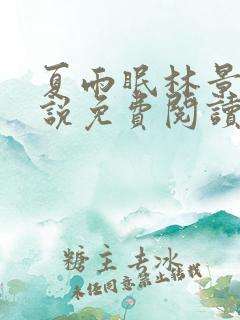 夏雨眠林景
說免費閱讀
糖主去冰
未经同意禁止转载